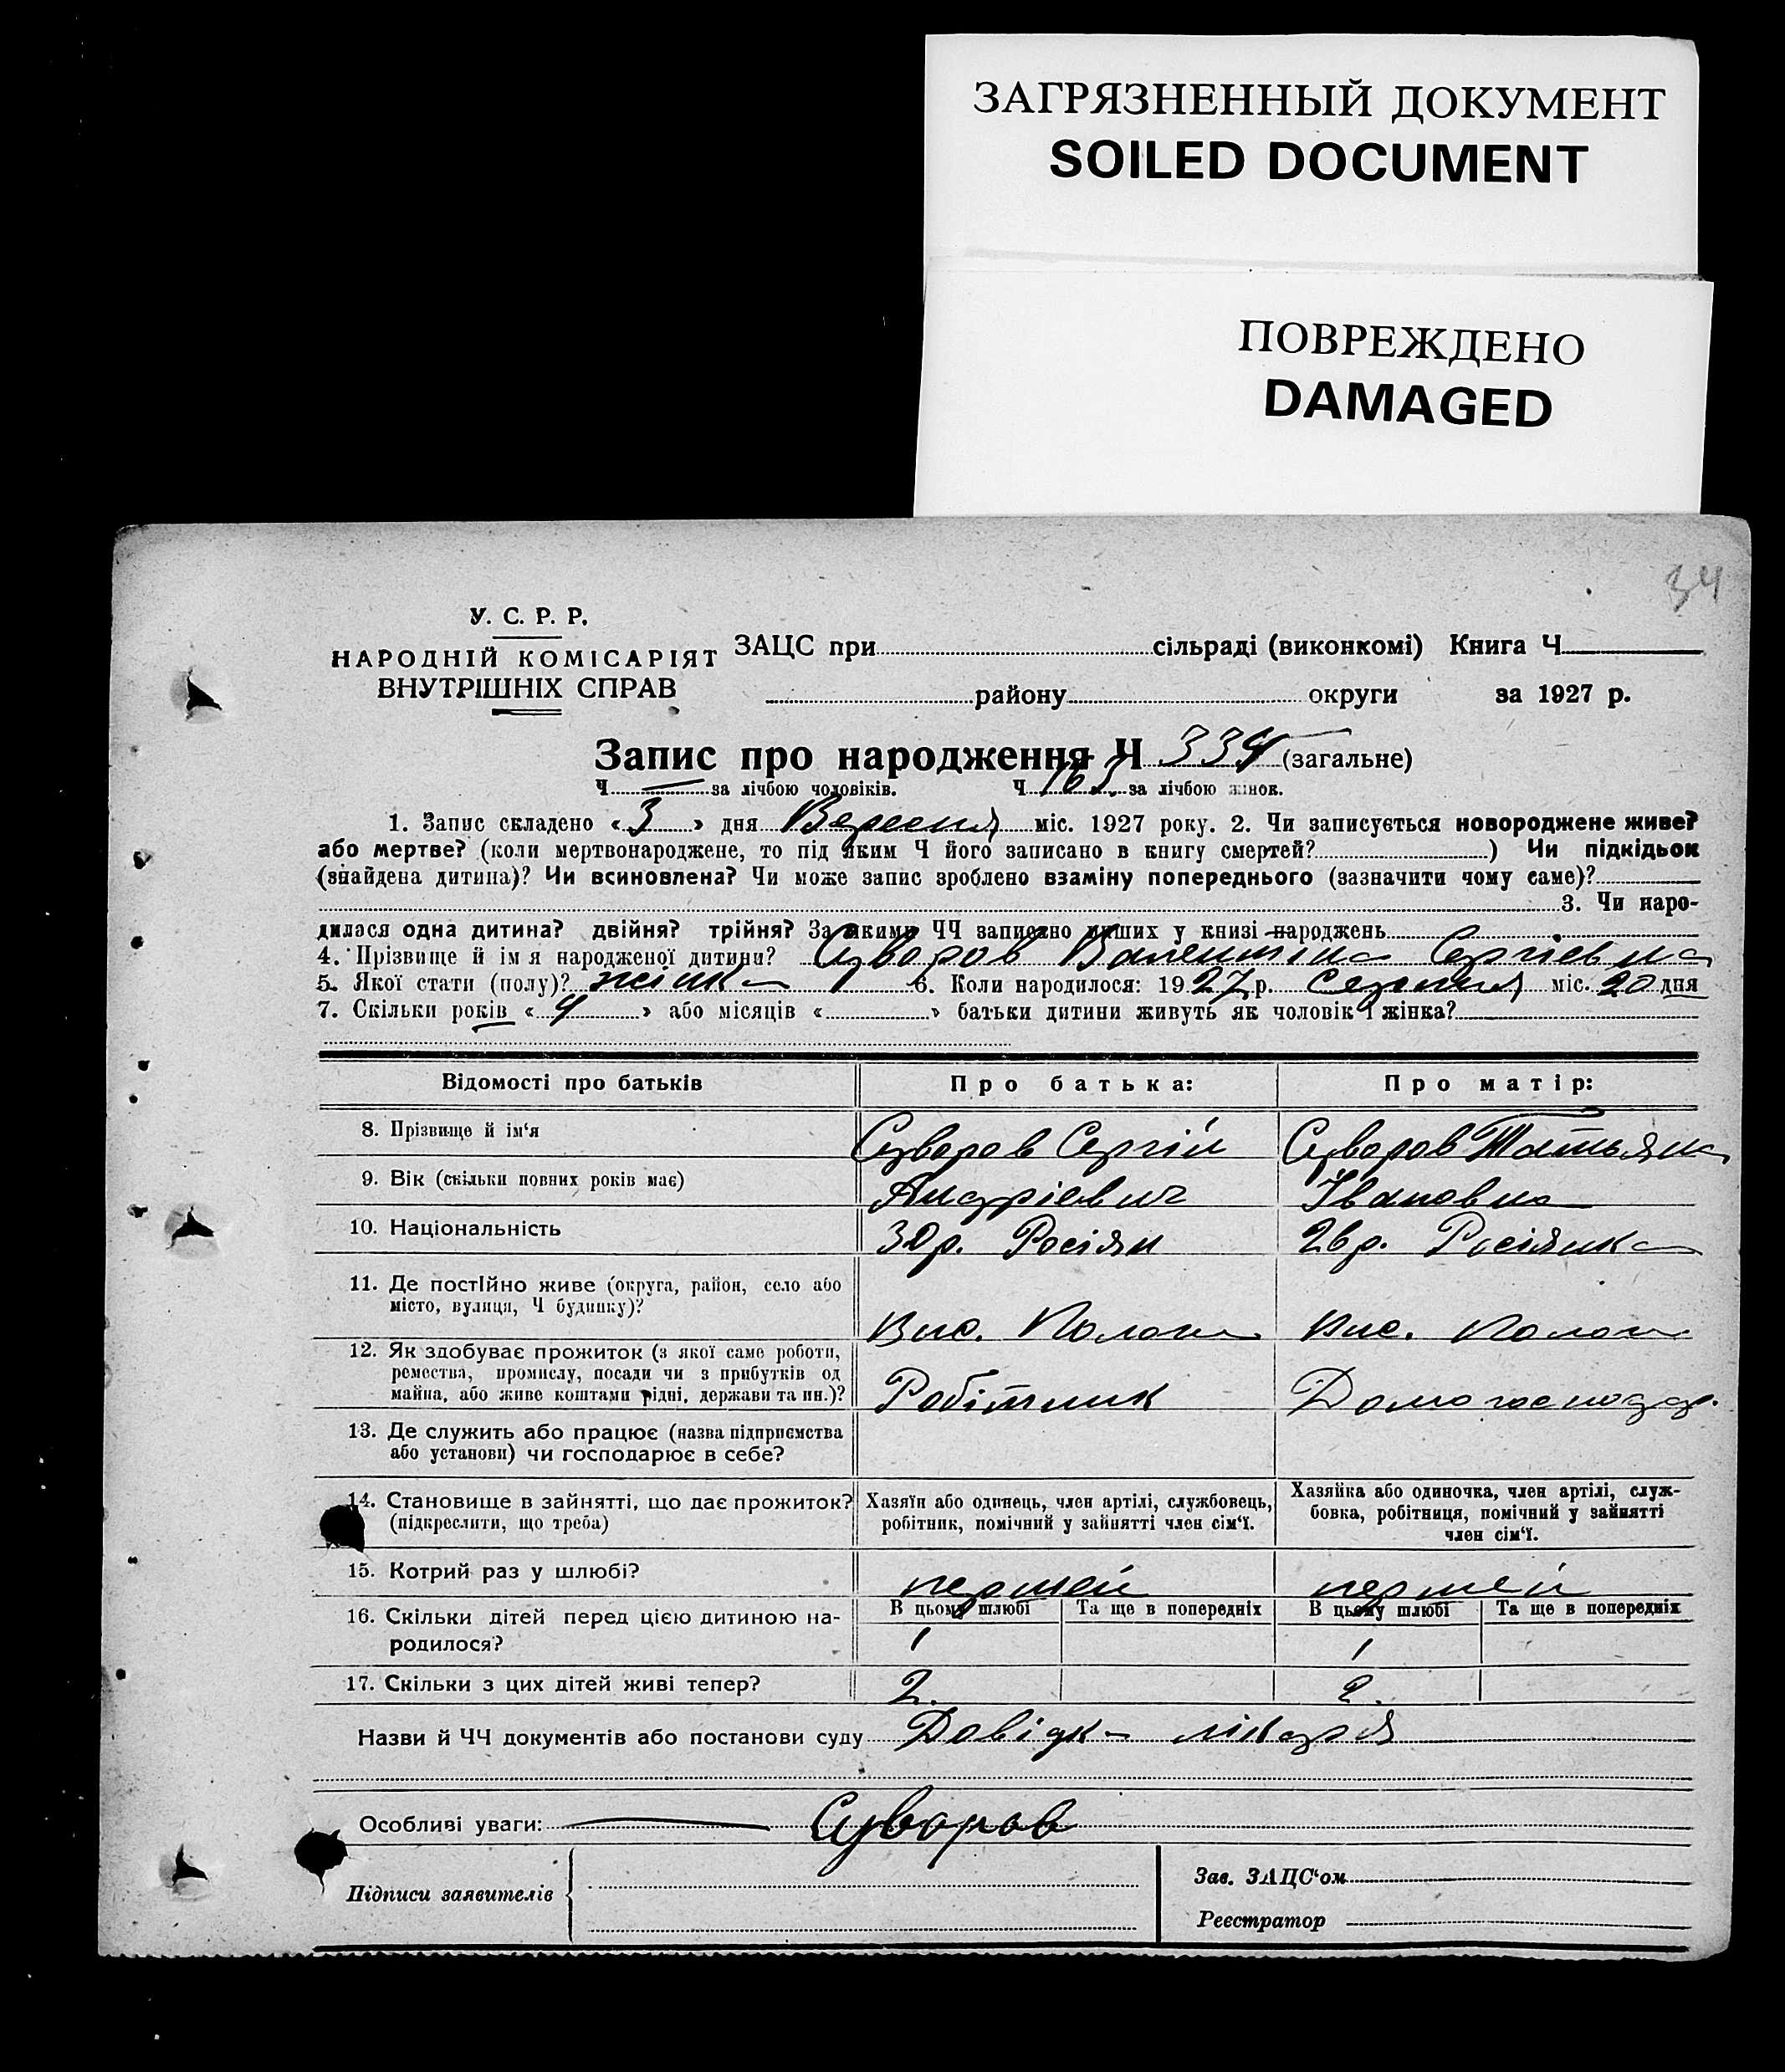 ЗАГРЯЗНЕННЫЙ ДОКУМЕНТ
SOILED DOCUMENT
ПОВРЕЖДЕНО
DAMAGED
34
У. С. Р. Р.
НАРОДНІЙ КОМІСАРІЯТ
ВНУТРІШНІХ СПРАВ
ЗАЦС при сільраді (виконкомі) Книга Ч
району округи за 1927 р.
Запис про народження Ч 334 (загальне)
Ч — за лічбою чоловіків. Ч 163 за лічбою жінок.
1. Запис складено «3» дня Вересня міс. 1927 року. 2. Чи записується новороджене живе?
або мертве? (коли мертвонароджене, то під яким Ч його записано в книгу смертей?) Чи підкідьок
(знайдена дитина)? Чи всиновлена? Чи може запис зроблено взаміну попереднього (зазначити чому саме)?
3. Чи наро-
дилася одна дитина? двійня? трійня? За якими ЧЧ записано инших у книзі народжень
4. Прізвище й ім я народженої дитини? Суворов Валентина Сергієвна
5. Якої стати (полу)? жінка 6. Коли народилося: 1927 р. Серпня міс. 20 дня
7. Скільки років «4» або місяців « » батьки дитини живуть як чоловік і жінка?
Відомості про батьків Про батька: Про матір:
8. Прізвище й ім‘я Суворов Сергій Суворов Татьяна
9. Вік (скільки повних років має) Андрієвич Івановна
10. Національність 30 р. Росіян 26 р. Росіянка
11. Де постійно живе (округа, район, село або
місто, вулиця, Ч будинку)? Вис. Колон Вис. Колон
12. Як здобуває прожиток (з якої саме роботи,
ремества, промислу, посади чи з прибутків од
майна, або живе коштами рідні, держави та ин.)? Робітник Домогосподар.
13. Де служить або працює (назва підприємства
або установи) чи господарює в себе?
14. Становище в зайнятті, що дає прожиток?
(підкреслити, що треба)
Хазяїн або одинець, член артілі, службовець,
робітник, помічний у зайнятті член сім‘ї.
Хазяйка або одиночка, член артілі, служ-
бовка, робітниця, помічний у зайнятті
член сім‘ї.
15. Котрий раз у шлюбі? першей першей
16. Скільки дітей перед цією дитиною на-
родилося?
В цьому шлюбі Та ще в попередніх В цьому шлюбі Та ще в попередніх
1 1
17. Скільки з цих дітей живі тепер? 2. 2.
Назви й ЧЧ документів або постанови суду Довідка лікаря
Особливі уваги: — Суворов
Підписи заявителів
Зав. ЗАЦС‘ом
Реєстратор